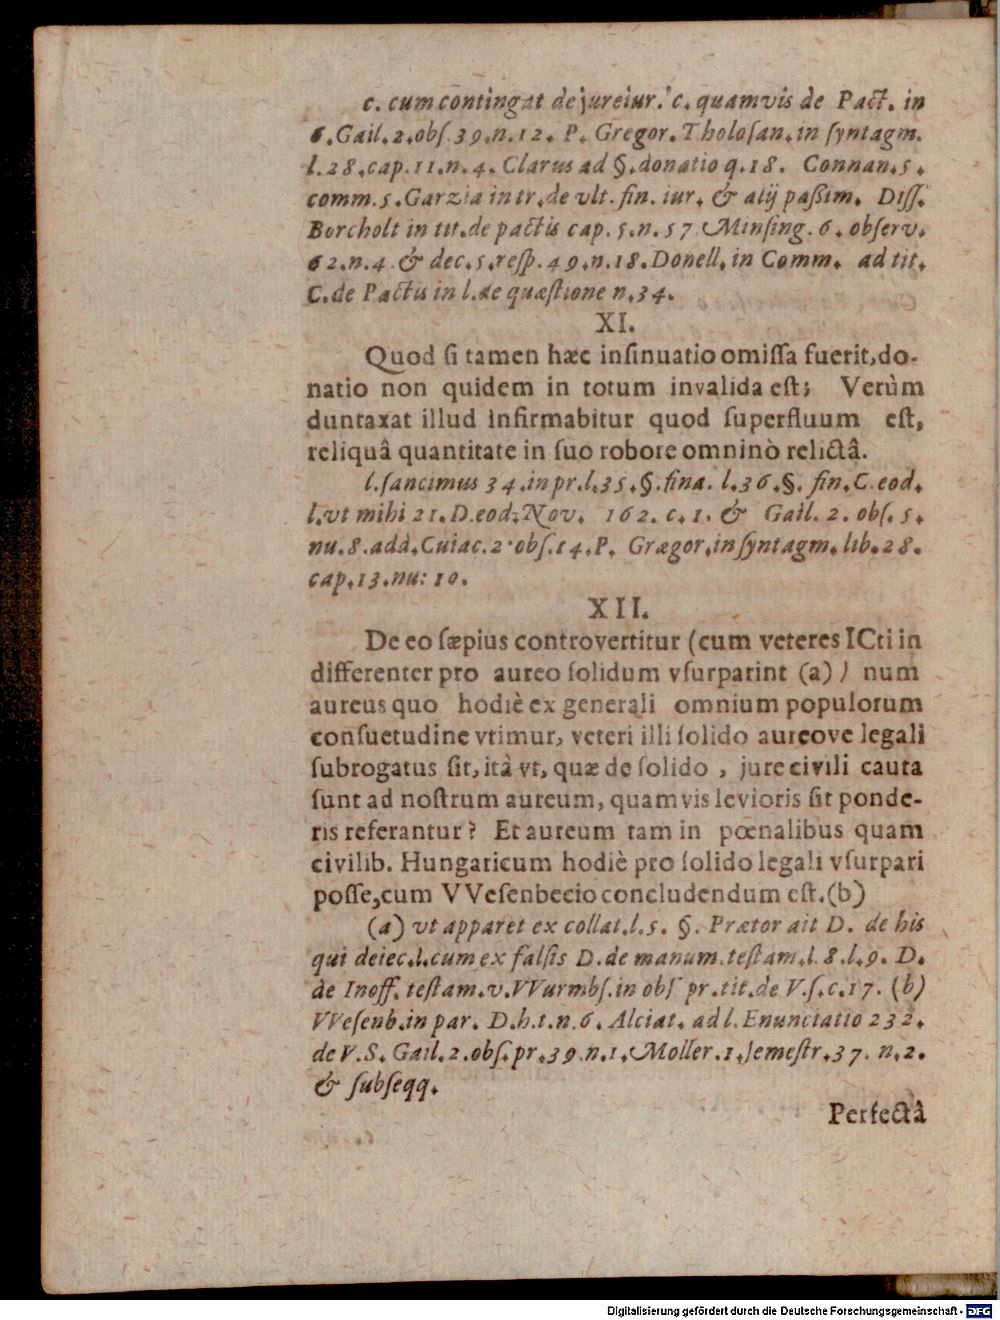 c. cum contingat de jureiur. c. quamvis de Pact. in
6. Gail. 2. obſ. 39. n. 12. P. Gregor. Tholoſan. in ſyntagm.
l. 28. cap. 11. n. 4. Clarus ad §. donatio q. 18. Connan. 5.
comm. 5. Garzia in tr. de vlt. fin. iur. & alij paßim. Diſſ.
Borcholt in tit. de pactis cap. 5. n. 57 Minſing. 6. obſerv.
62. n. 4. & dec. 5. reſp. 49. n. 18. Donell. in Comm. ad tit.
C. de Pactis in l. de quæſtione n. 34.
XI.
Quod ſi tamen hæc inſinuatio omiſſa fuerit, do-
natio non quidem in totum invalida eſt; Verùm
duntaxat illud infirmabitur quod ſuperfluum eſt,
reliquâ quantitate in ſuo robore omninò relictâ.
l. ſancimus 34. in pr. l. 35. §. fina. l. 36. §. fin. C. eod.
l. vt mihi 21. D. eod; Nov. 162. c. 1. & Gail. 2. obſ. 5.
nu. 8. add. Cuiac. 2. obſ. 14. P. Grægor. in ſyntagm. lib. 28.
cap. 13. nu: 10.
XII.
De eo ſæpius controvertitur (cum veteres ICti in
differenter pro aureo ſolidum vſurparint (a) ) num
aureus quo hodiè ex generali omnium populorum
conſuetudine vtimur, veteri illi ſolido aureove legali
ſubrogatus ſit, ità vt, quæ de ſolido , jure civili cauta
ſunt ad noſtrum aureum, quamvis levioris ſit ponde-
ris referantur? Et aureum tam in pœnalibus quam
civilib. Hungaricum hodiè pro ſolido legali vſurpari
poſſe, cum VVeſenbecio concludendum eſt. (b)
(a) vt apparet ex collat. l. 5. §. Prætor ait D. de his
qui deiec. l. cum ex falſis D. de manum. teſtam. l. 8. l. 9. D.
de Inoff. teſtam. v. VVurmbſ. in obſ pr. tit. de V. ſ. c. 17. (b)
VVeſenb. in par. D. h. t. n. 6. Alciat. ad l. Enunciatio 232.
de V. S. Gail. 2. obſ. pr. 39. n. 1. Moller. 1. ſemeſtr. 37. n. 2.
& ſubſeqq.
Perfectâ
Digitalisierung gefördert durch die Deutsche Forschungsgemeinschaft - DFG